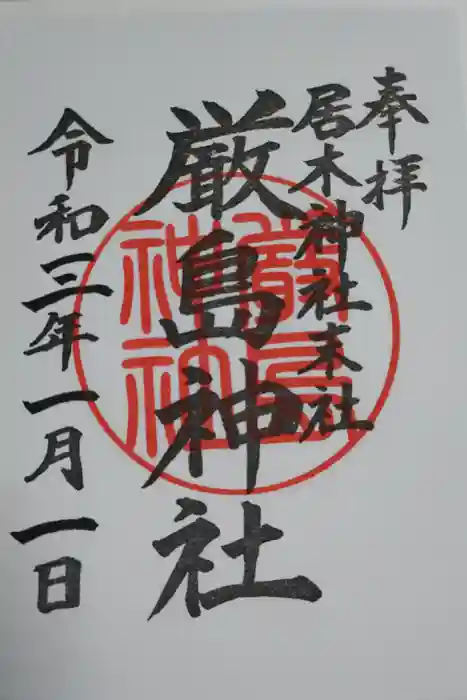 奉拝
居木神社末社
厳島神社
令和三年一月一日